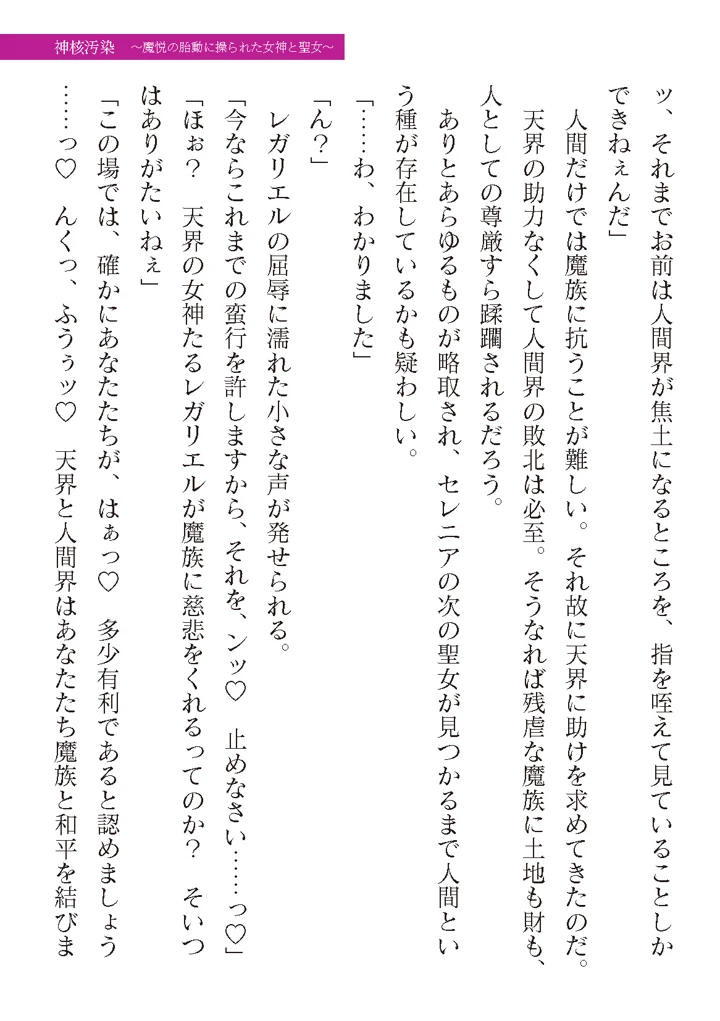 神核汚染　～魔悦の胎動に操られた女神と聖女～
ッ、それまでお前は人間界が焦土になるところを、指を咥えて見ていることしか
できねぇんだ」
　人間だけでは魔族に抗うことが難しい。それ故に天界に助けを求めてきたのだ。
　天界の助力なくして人間界の敗北は必至。そうなれば残虐な魔族に土地も財も、
人としての尊厳すら蹂躙されるだろう。
　ありとあらゆるものが略取され、セレニアの次の聖女が見つかるまで人間とい
う種が存在しているかも疑わしい。
「……わ、わかりました」
「ん？」
　レガリエルの屈辱に濡れた小さな声が発せられる。
「今ならこれまでの蛮行を許しますから、それを、ンッ♡　止めなさい……っ♡」
「ほぉ？　天界の女神たるレガリエルが魔族に慈悲をくれるってのか？　そいつ
はありがたいねぇ」
「この場では、確かにあなたたちが、はぁっ♡　多少有利であると認めましょう
……っ♡　んくっ、ふうぅッ♡　天界と人間界はあなたたち魔族と和平を結びま